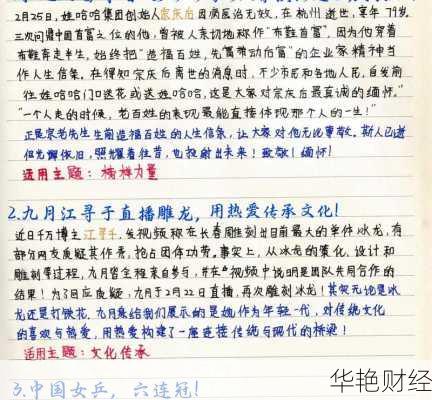 2月25日,娃哈哈集团创始人宗庆后因病医治无效,在杭州逝世,享年79岁。
三次问鼎中国首富之位的他,曾被人亲切地称作"布鞋首富",因为他穿着
布鞋奔走半生,始终把"造福百姓,先富带动后富"的企业家精神当
作人生信条。在得知宗庆后离世的消息时,不少市民和各地人民,自发前
往娃哈哈门口送花或送娃哈哈,这是大家对宗庆后最真诚的缅怀。"
"一个人走的时候,老百姓的表现最能直接体现那个人的一生!"
正是宗老先生生前造福百姓的人生信条,让大家对他无比尊敬。斯人已逝
但光辉依旧,照耀着往昔,也投射出未来!致敬!缅怀!
适用主题:榜样力量
2.九月江寻于直播雕龙,用热爱传承文化!
近日千万博主江寻千,发视频称在长春雕刻出目前最大的单件冰龙,有
部分网友质疑其作秀,抢占团体功劳。事实上,从冰龙的策划、设计和
雕刻等过程,九月皆全程亲自参与,并在视频中说明是团队共同合作的
结果!为了回应质疑,九月于2月22日直播,再次雕刻冰龙!其实无论是冰
龙还是打铁花,九月乘给我们展示的是她作为年轻一代,对传统文化
的喜欢与热爱,用热爱构建了一座连接传统与现代的桥梁!
适用主题:文化传承
3.中国女乒,六连冠!
华艳财经